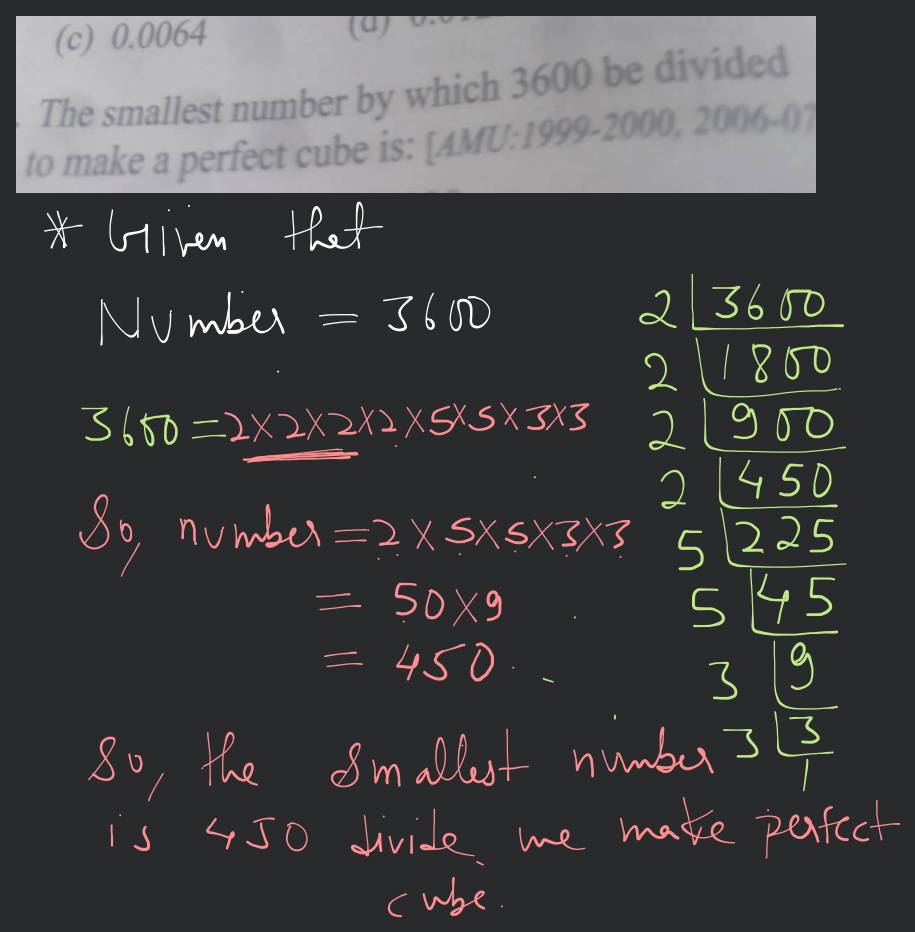 (c) 0.0064 (d)
The smallest number by which 3600 be divided
to make a perfect cube is: [AMU:1999-2000, 2006-07
* Given that
Number = 3600
3600 = 2×2×2×2×5×5×3×3
So, number = 2×5×5×3×3
= 50×9
= 450.
So, the smallest number
is 450 divide we make perfect
cube.
2 3600
2 1800
2 900
2 450
5 225
5 45
3 9
3 3
1